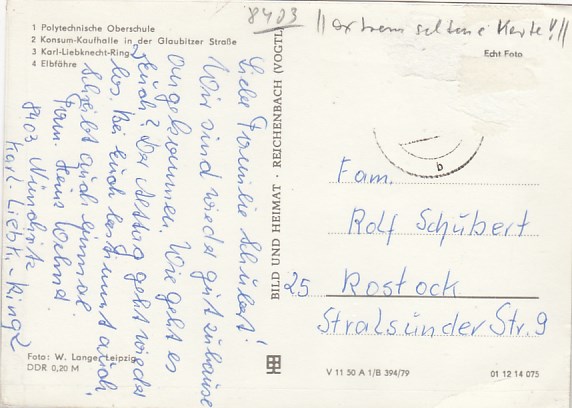 8403 || extrem seltene Karte!! ||
1 Polytechnische Oberschule
2 Konsum-Kaufhalle in der Glaubitzer Straße
3 Karl-Liebknecht-Ring
4 Elbfähre
Echt Foto
Liebe Familie Schubert!
Wir sind wieder gut zuhause
angekommen. Wie geht es
Euch? Der Alltag geht wieder
los. Bei Euch bestimmt auch.
Schreibt auch einmal
Fam.
8403 Nünchritz
Karl-Liebk.-Ring 2
BILD UND HEIMAT · REICHENBACH (VOGTL
b
Fam.
Rolf Schubert
25 Rostock
Stralsunder Str. 9
Foto: W. Langer, Leipzig
DDR 0,20 M
V 11 50 A 1/B 394/79
01 12 14 075